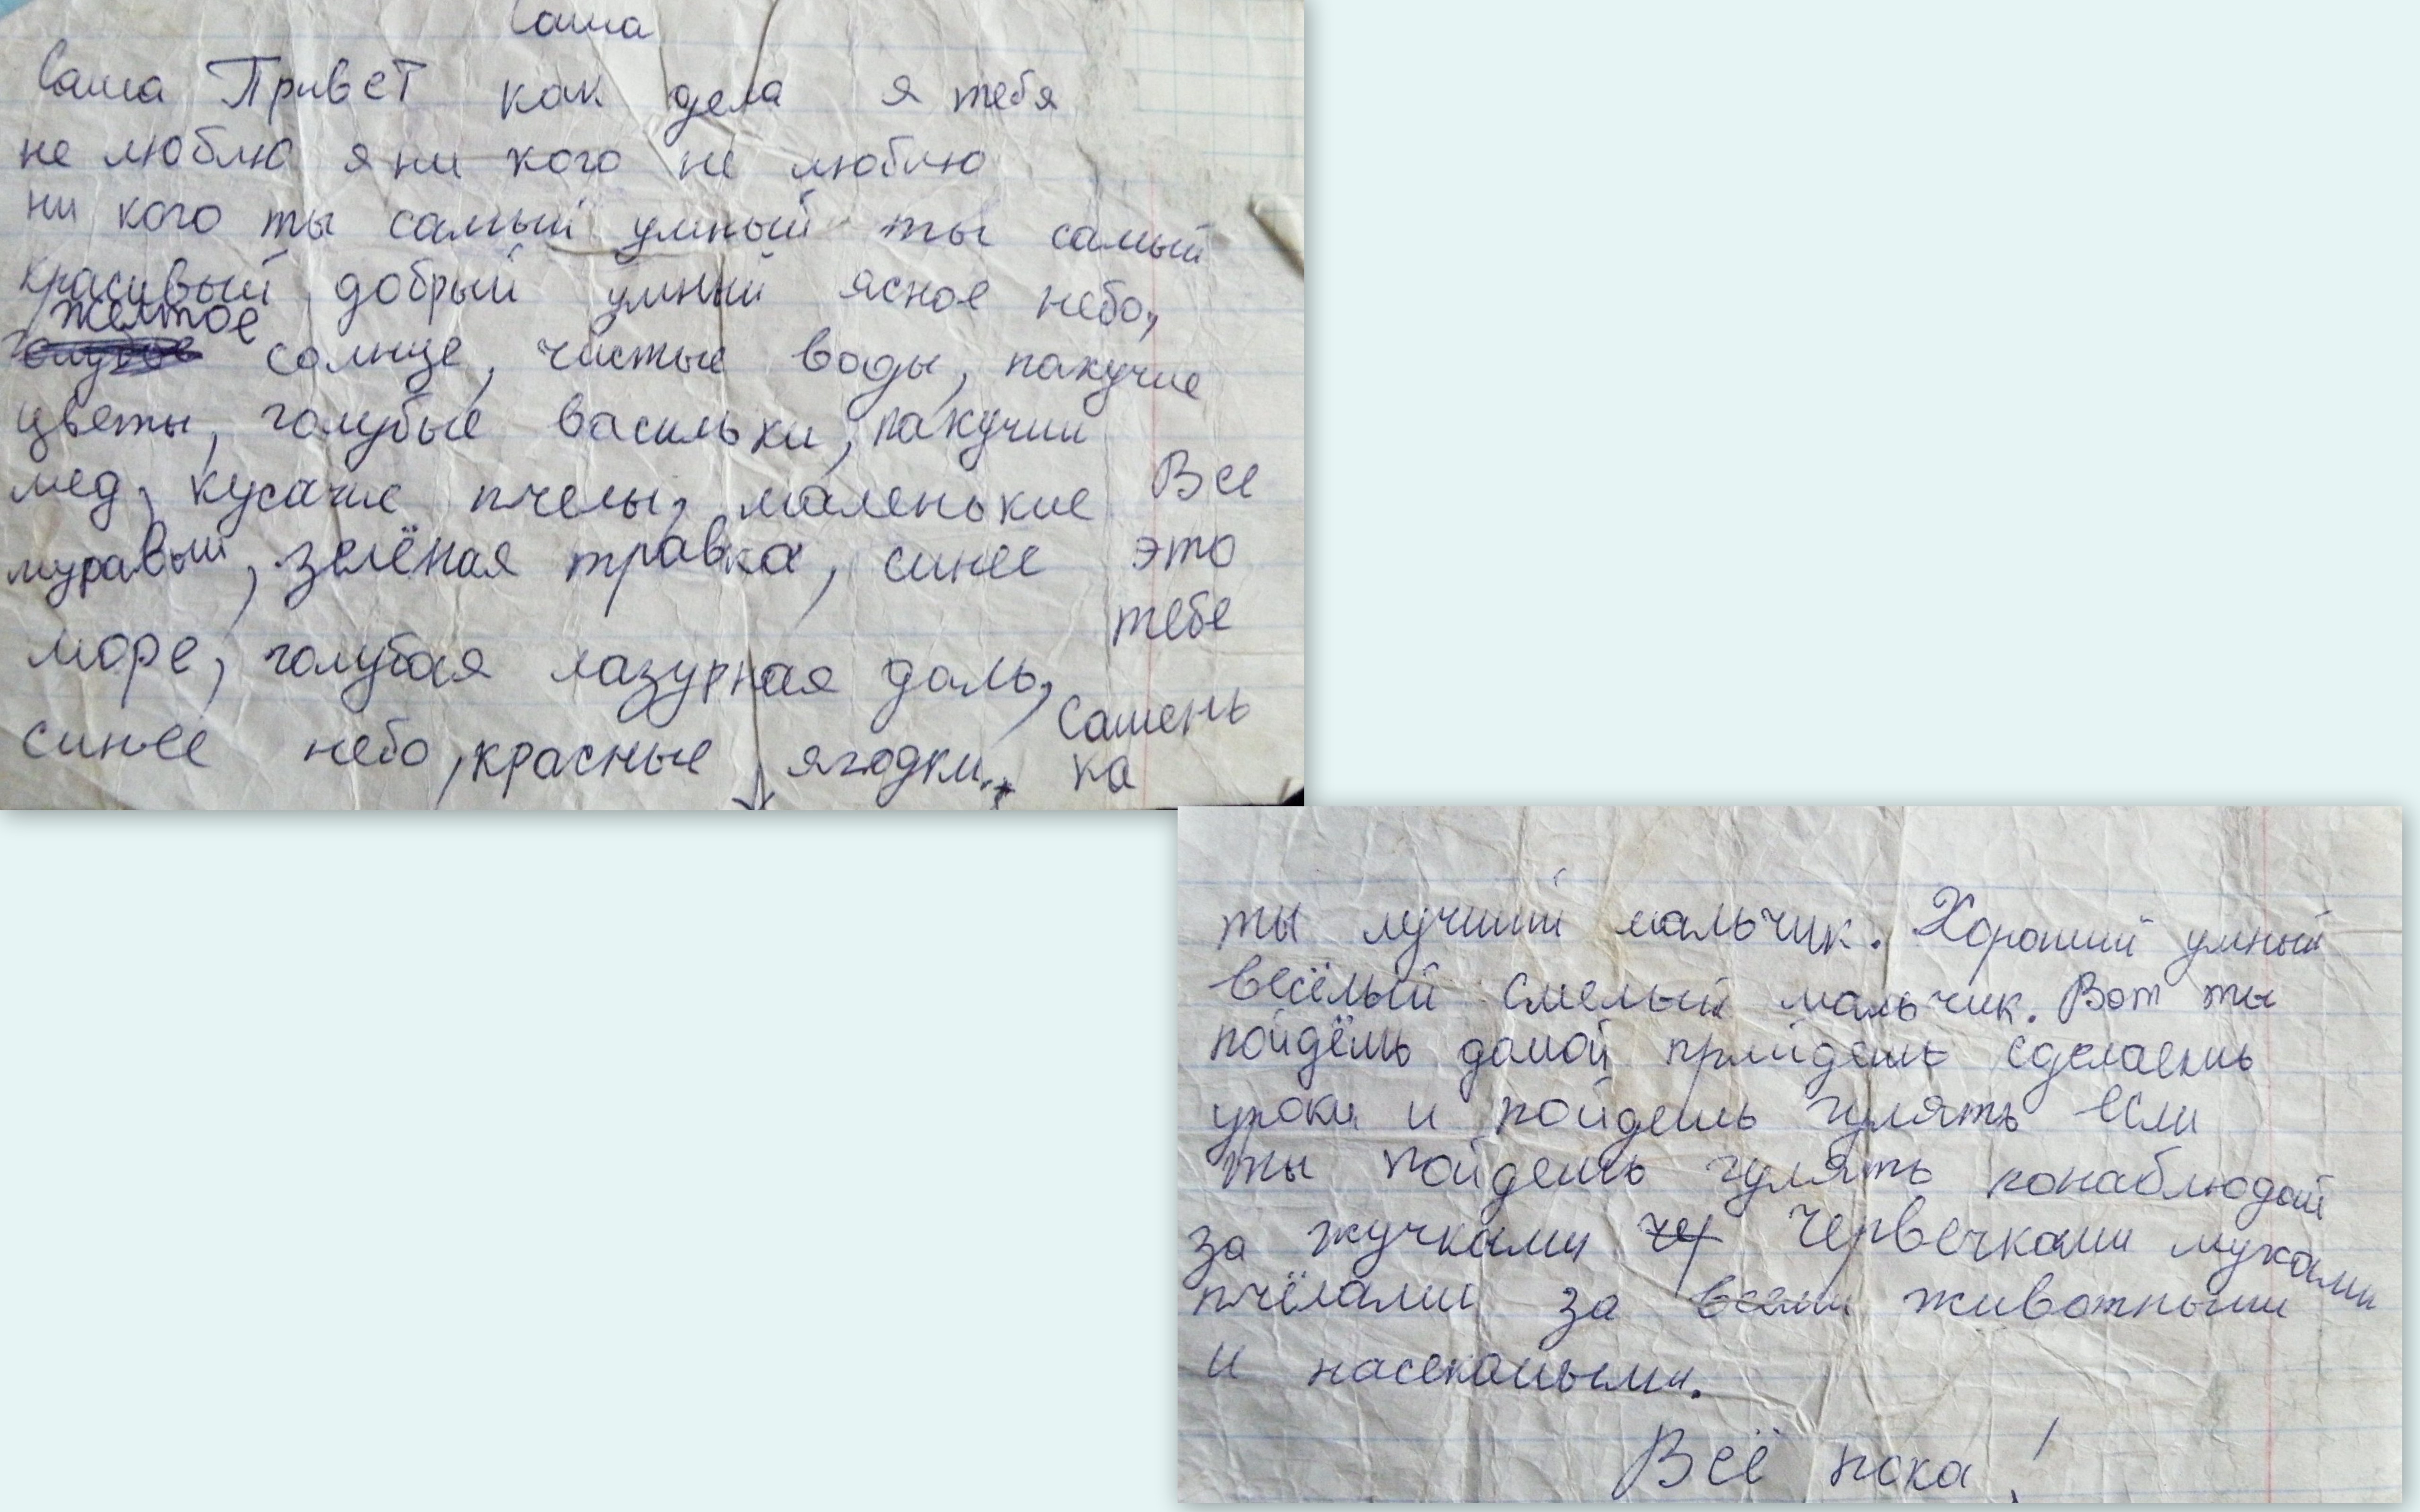 Саша
Саша Привет как дела я тебя
не люблю я ни кого не люблю
ни кого ты самый умный ты самый
красивый добрый умный ясное небо,
желтое
голубое солнце, чистые воды, пахучие
цветы, голубые васильки, пахучий
мед, кусачие пчелы, маленькие
муравьи, зелёная травка, синее
море, голубая лазурная даль,
синее небо, красные ягодки..,
Все
это
тебе
Сашень
ка
ты лучший мальчик. Хороший умный
весёлый смелый мальчик. Вот ты
пойдёшь домой прийдешь сделаешь
уроки и пойдешь гулять если
ты пойдешь гулять понаблюдай
за жучками чер червечками мухами
пчёлами за всеми животными
и насекомыми.
Всё пока!